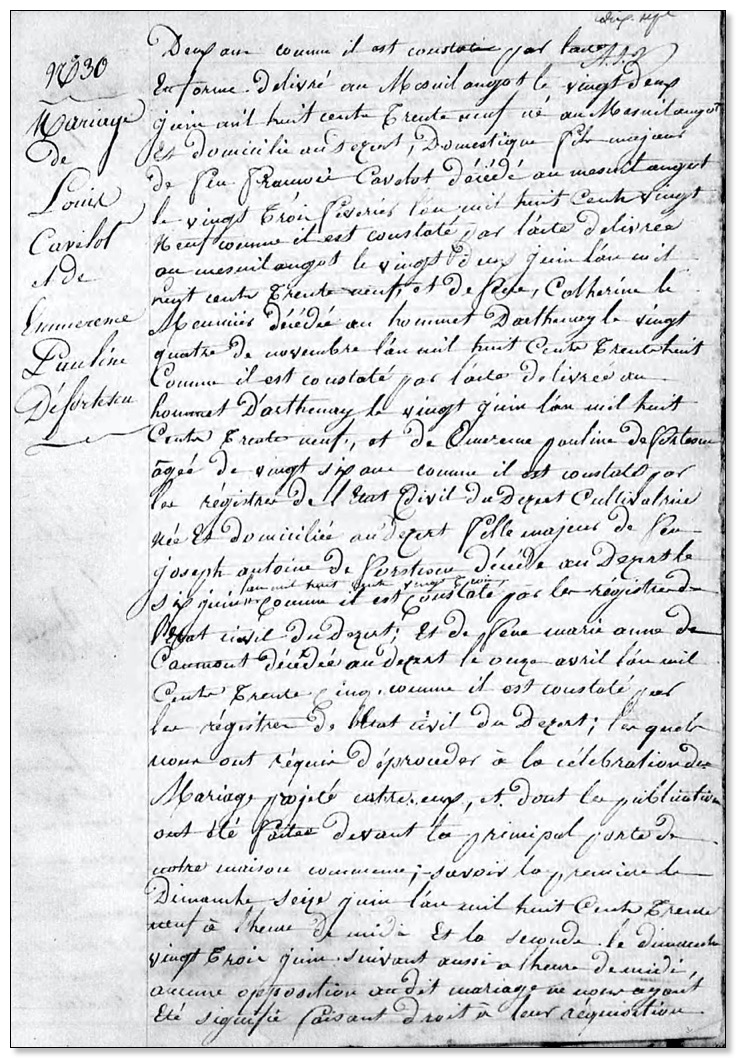 N° 30
Mariage
de
Louis
Cavelot
et de
Emmereme
Pauline
Défortescu
Deux ans comme il est constaté par l'acte
En forme delivré au Mesnilangot le vingt deux
juin mil huit cents Trente neuf né au Mesnilangot
Et domicilié au Dezert, Domestique fils majeur
de feu François Cavelot décédé au mesnilangot
le vingt Trois Février l'an mil huit Cents vingt
Neuf comme il est constaté par l'acte delivrée
au mesnilangot le vingt deux juin l'an mil
huit cents Trente neuf, et de feue, Catherine le
Meunier décédée au hommet Darthenay le vingt
quatre de novembre l'an mil huit Cents Trente huit
Comme il est constaté par l'acte delivrée au
hommet D'arthenay le vingt juin l'an mil huit
Cents Trente neuf, et de Emereme pauline de fortescu
âgée de vingt six ans comme il est constaté par
les régistres de l'Etat Civil du Dezert Cultivatrice
née Et domiciliée au dezert fille majeur de feu
joseph antoine de fortescu décédé au Dezert le
six juin l'an mil huit cents vingt trois comme il est constaté par les régistres de
l'Etat civil du Dezert; Et de feue marie anne de
Caumont décédée au dezert le onze avril l'an mil
Cents Trente cinq, comme il est constaté par
les régistres de l'etat civil du Dezert; les quels
nous ont réquis de procéder à la célébration du
Mariage projeté entre eux, et dont les publications
ont été faites devant la principal porte de
notre maison commune; savoir la première le
Dimanche seize juin l'an mil huit Cents Trente
neuf à l'heure de midi Et la seconde le dimanche
vingt Trois juin suivant aussi a l'heure de midi,
aucune opposition audit mariage ne nous ayant
Eté signifié faisant droit à leur réquisition